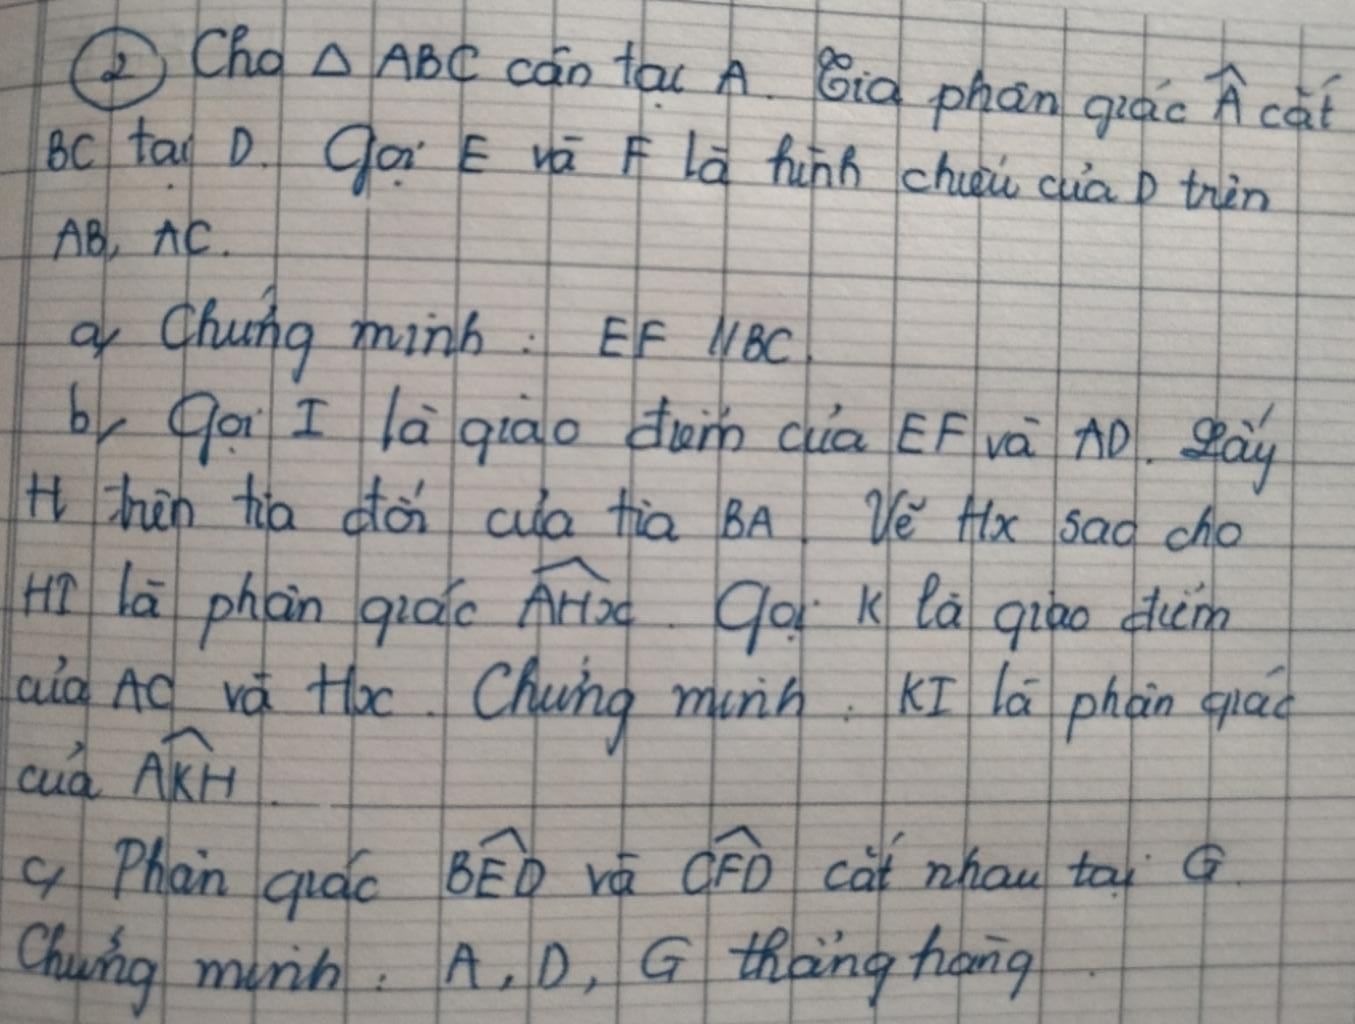 ② Cho △ ABC cân tại A. Tia phân giác Â cắt
BC tại D. Gọi E và F là hình chiếu của D trên
AB, AC.
a, Chứng minh : EF // BC.
b, Gọi I là giao điểm của EF và AD. Lấy
H trên tia đối của tia BA. Vẽ Hx sao cho
HI là phân giác AHx. Gọi K là giao điểm
của AC và Hx. Chứng minh : KI là phân giác
của AKH.
c, Phân giác BED và CFD cắt nhau tại G.
Chứng minh : A, D, G thẳng hàng.